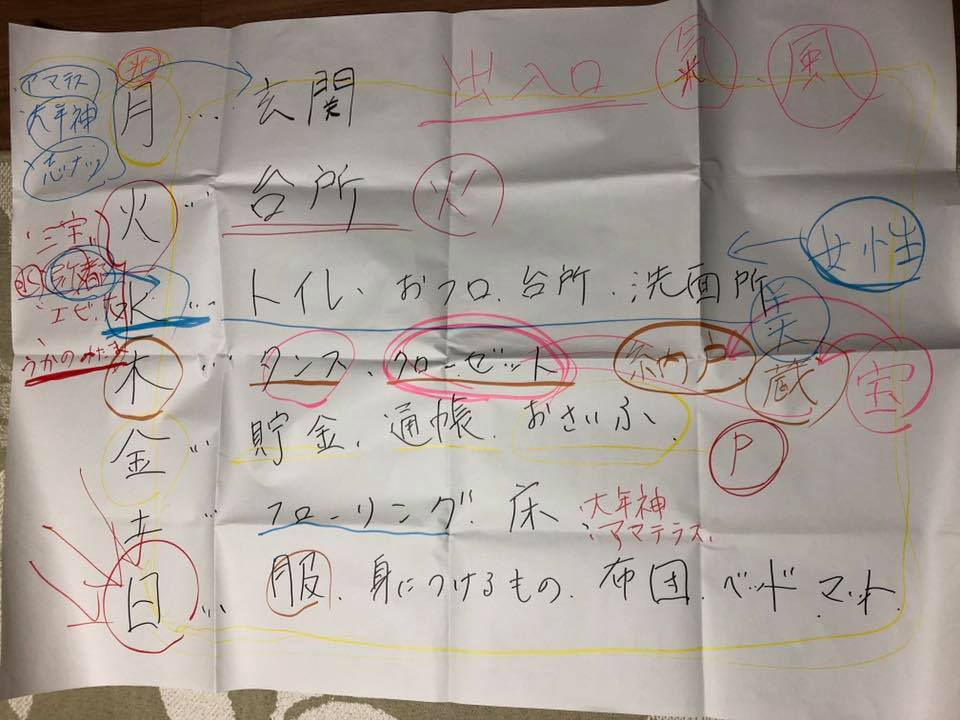 アマテラス
大年神
月 … 玄関
出入口 氣、風
火 … 台所 火
三宝
水 … トイレ、おフロ、台所、洗面所
女性
美
うかのみたま
木 … タンス、クローゼット 納戸 蔵 宝
金 … 貯金、通帳、おさいふ、
P
土 … フローリング、床
大年神
アマテラス
日 … 服、身につけるもの、布団、ベッド マット